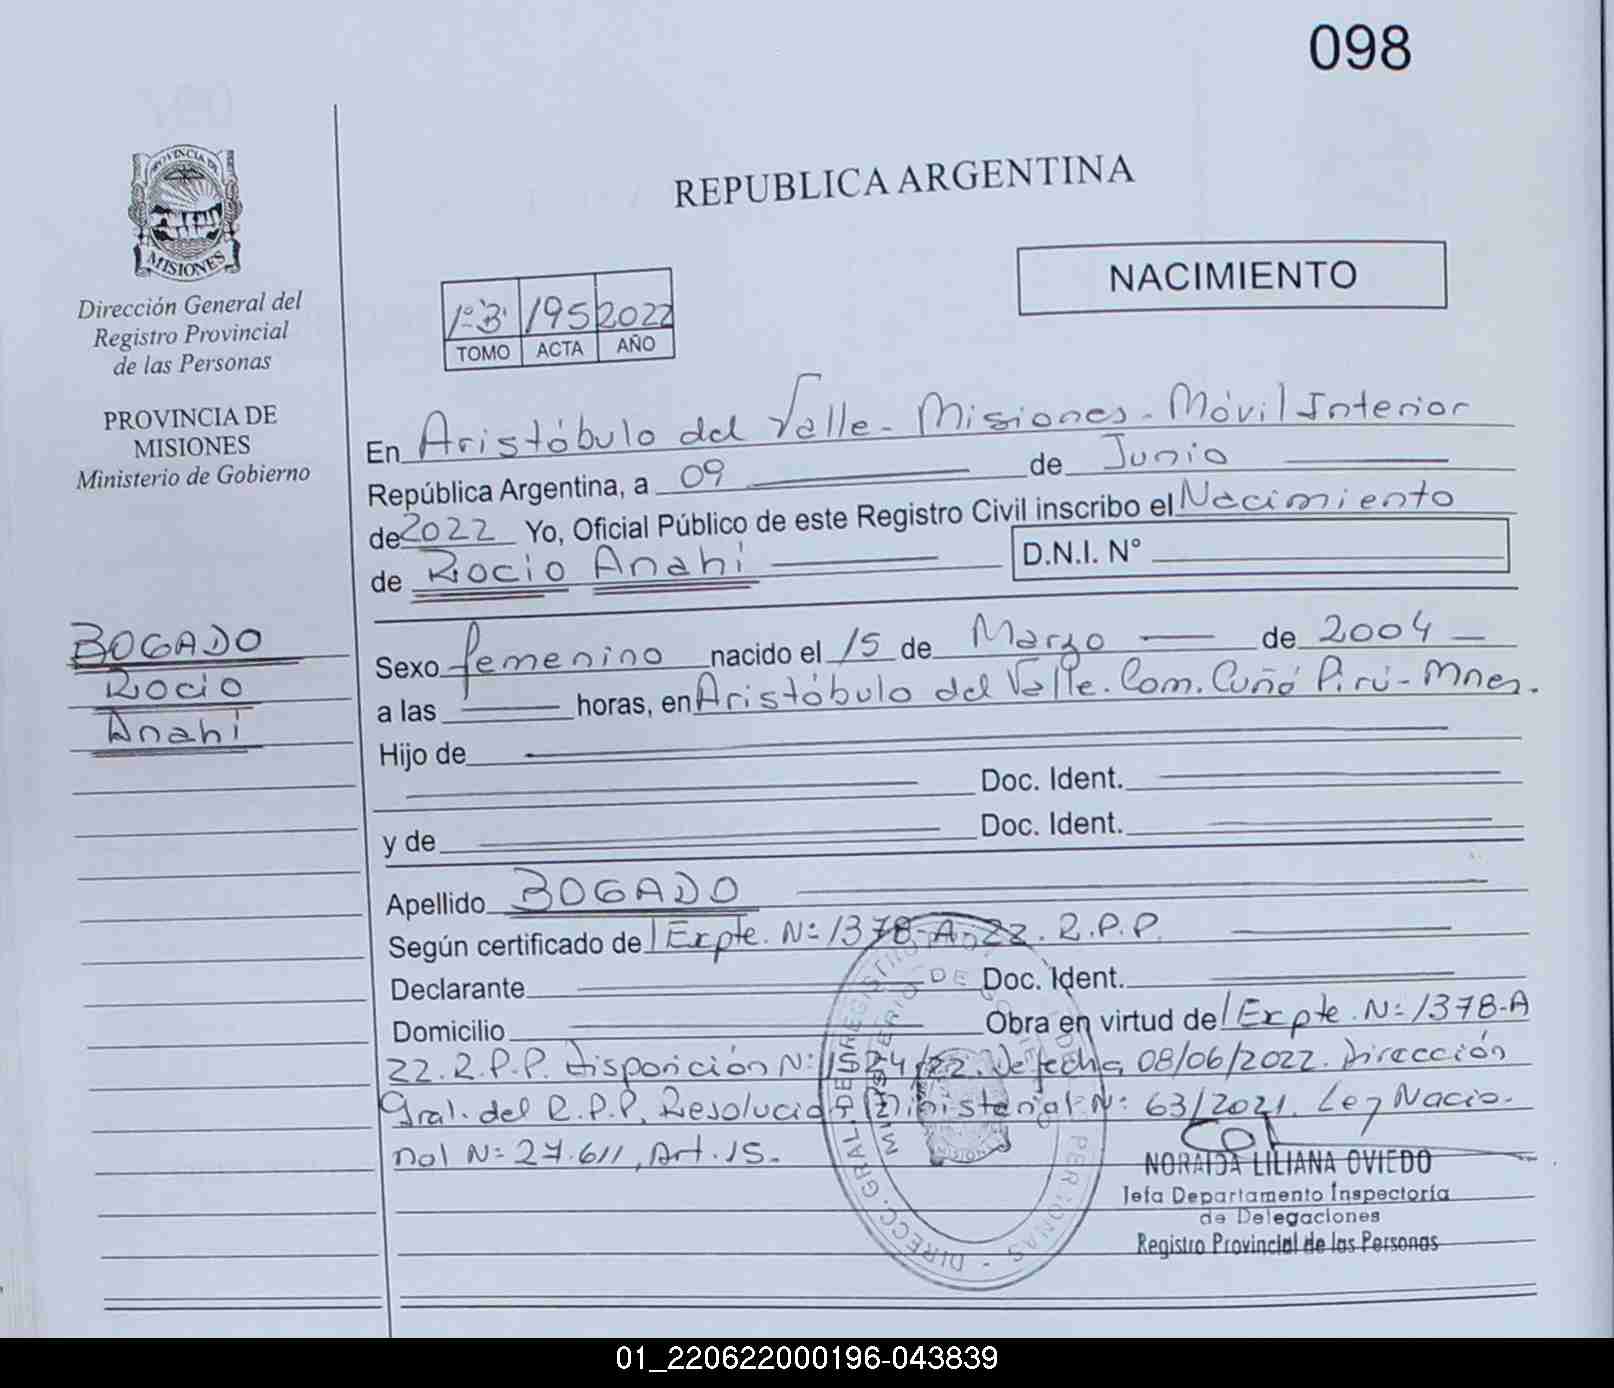 098
PROVINCIA DE
MISIONES
Dirección General del
Registro Provincial
de las Personas
PROVINCIA DE
MISIONES
Ministerio de Gobierno
BOGADO
Rocio
Anahi
REPUBLICA ARGENTINA
NACIMIENTO
1º"B" 195 2022
TOMO ACTA AÑO
En Aristóbulo del Valle - Misiones - Móvil Interior
República Argentina, a 09 de Junio
de 2022 Yo, Oficial Público de este Registro Civil inscribo el Nacimiento
de Rocio Anahi D.N.I. Nº
Sexo femenino nacido el 15 de Marzo de 2004
a las horas, en Aristóbulo del Valle. Com. Cuñá Pirú - Mnes.
Hijo de
Doc. Ident.
y de Doc. Ident.
Apellido BOGADO
Según certificado de Expte. Nº 1378-A-22. R.P.P.
Declarante Doc. Ident.
Domicilio Obra en virtud de Expte. Nº 1378-A
22. R.P.P. Disposición Nº /22. De fecha 08/06/2022. Dirección
Gral. del R.P.P. Resolución Ministerial Nº 63/2021. Ley Nacio-
nal Nº 27.611, Art. 15.
DIRECC. GRAL. DEL REGISTRO DE LAS PERSONAS
MINISTERIO DE GOBIERNO
NORAIDA LILIANA OVIEDO
Jefa Departamento Inspectoría
de Delegaciones
Registro Provincial de las Personas
01_220622000196-043839